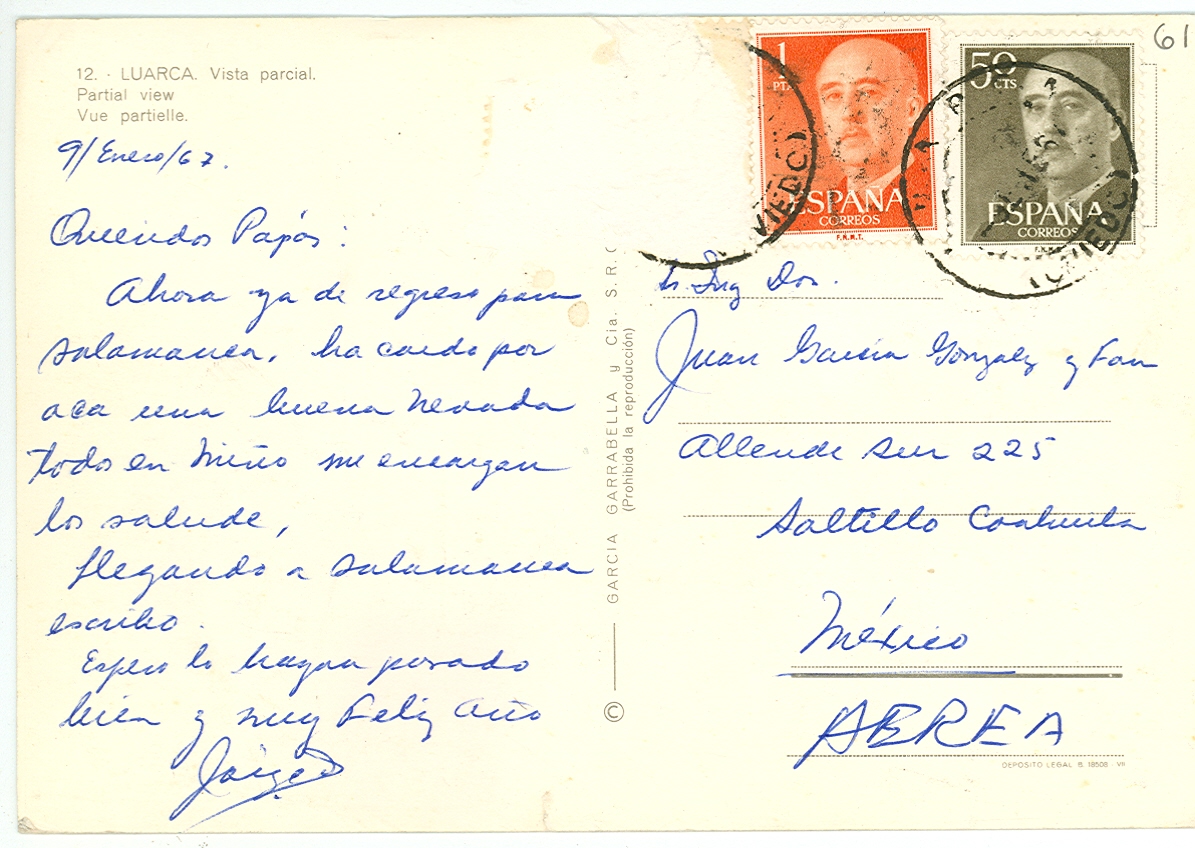 12. - LUARCA. Vista parcial.
Partial view
Vue partielle.
9/Enero/67.
Queridos Papás:
Ahora ya de regreso para
Salamanca, ha caido por
aca una buena nevada
todos en Miño me encargan
los salude,
llegando a Salamanca
escribo.
Espero lo hayan pasado
bien y muy Feliz Año
Jorge
GARCIA GARRABELLA y Cia. S. R. C
(Prohibida la reproducción)
©
1
PTA
ESPAÑA
CORREOS
F.N.M.T.
50
CTS
ESPAÑA
CORREOS
(OVIEDO)
61
Sr. Ing Don.
Juan García Gonzalez y Fam
Allende Sur 225
Saltillo Coahuila
México
AEREA
DEPOSITO LEGAL B. 18508 - VII